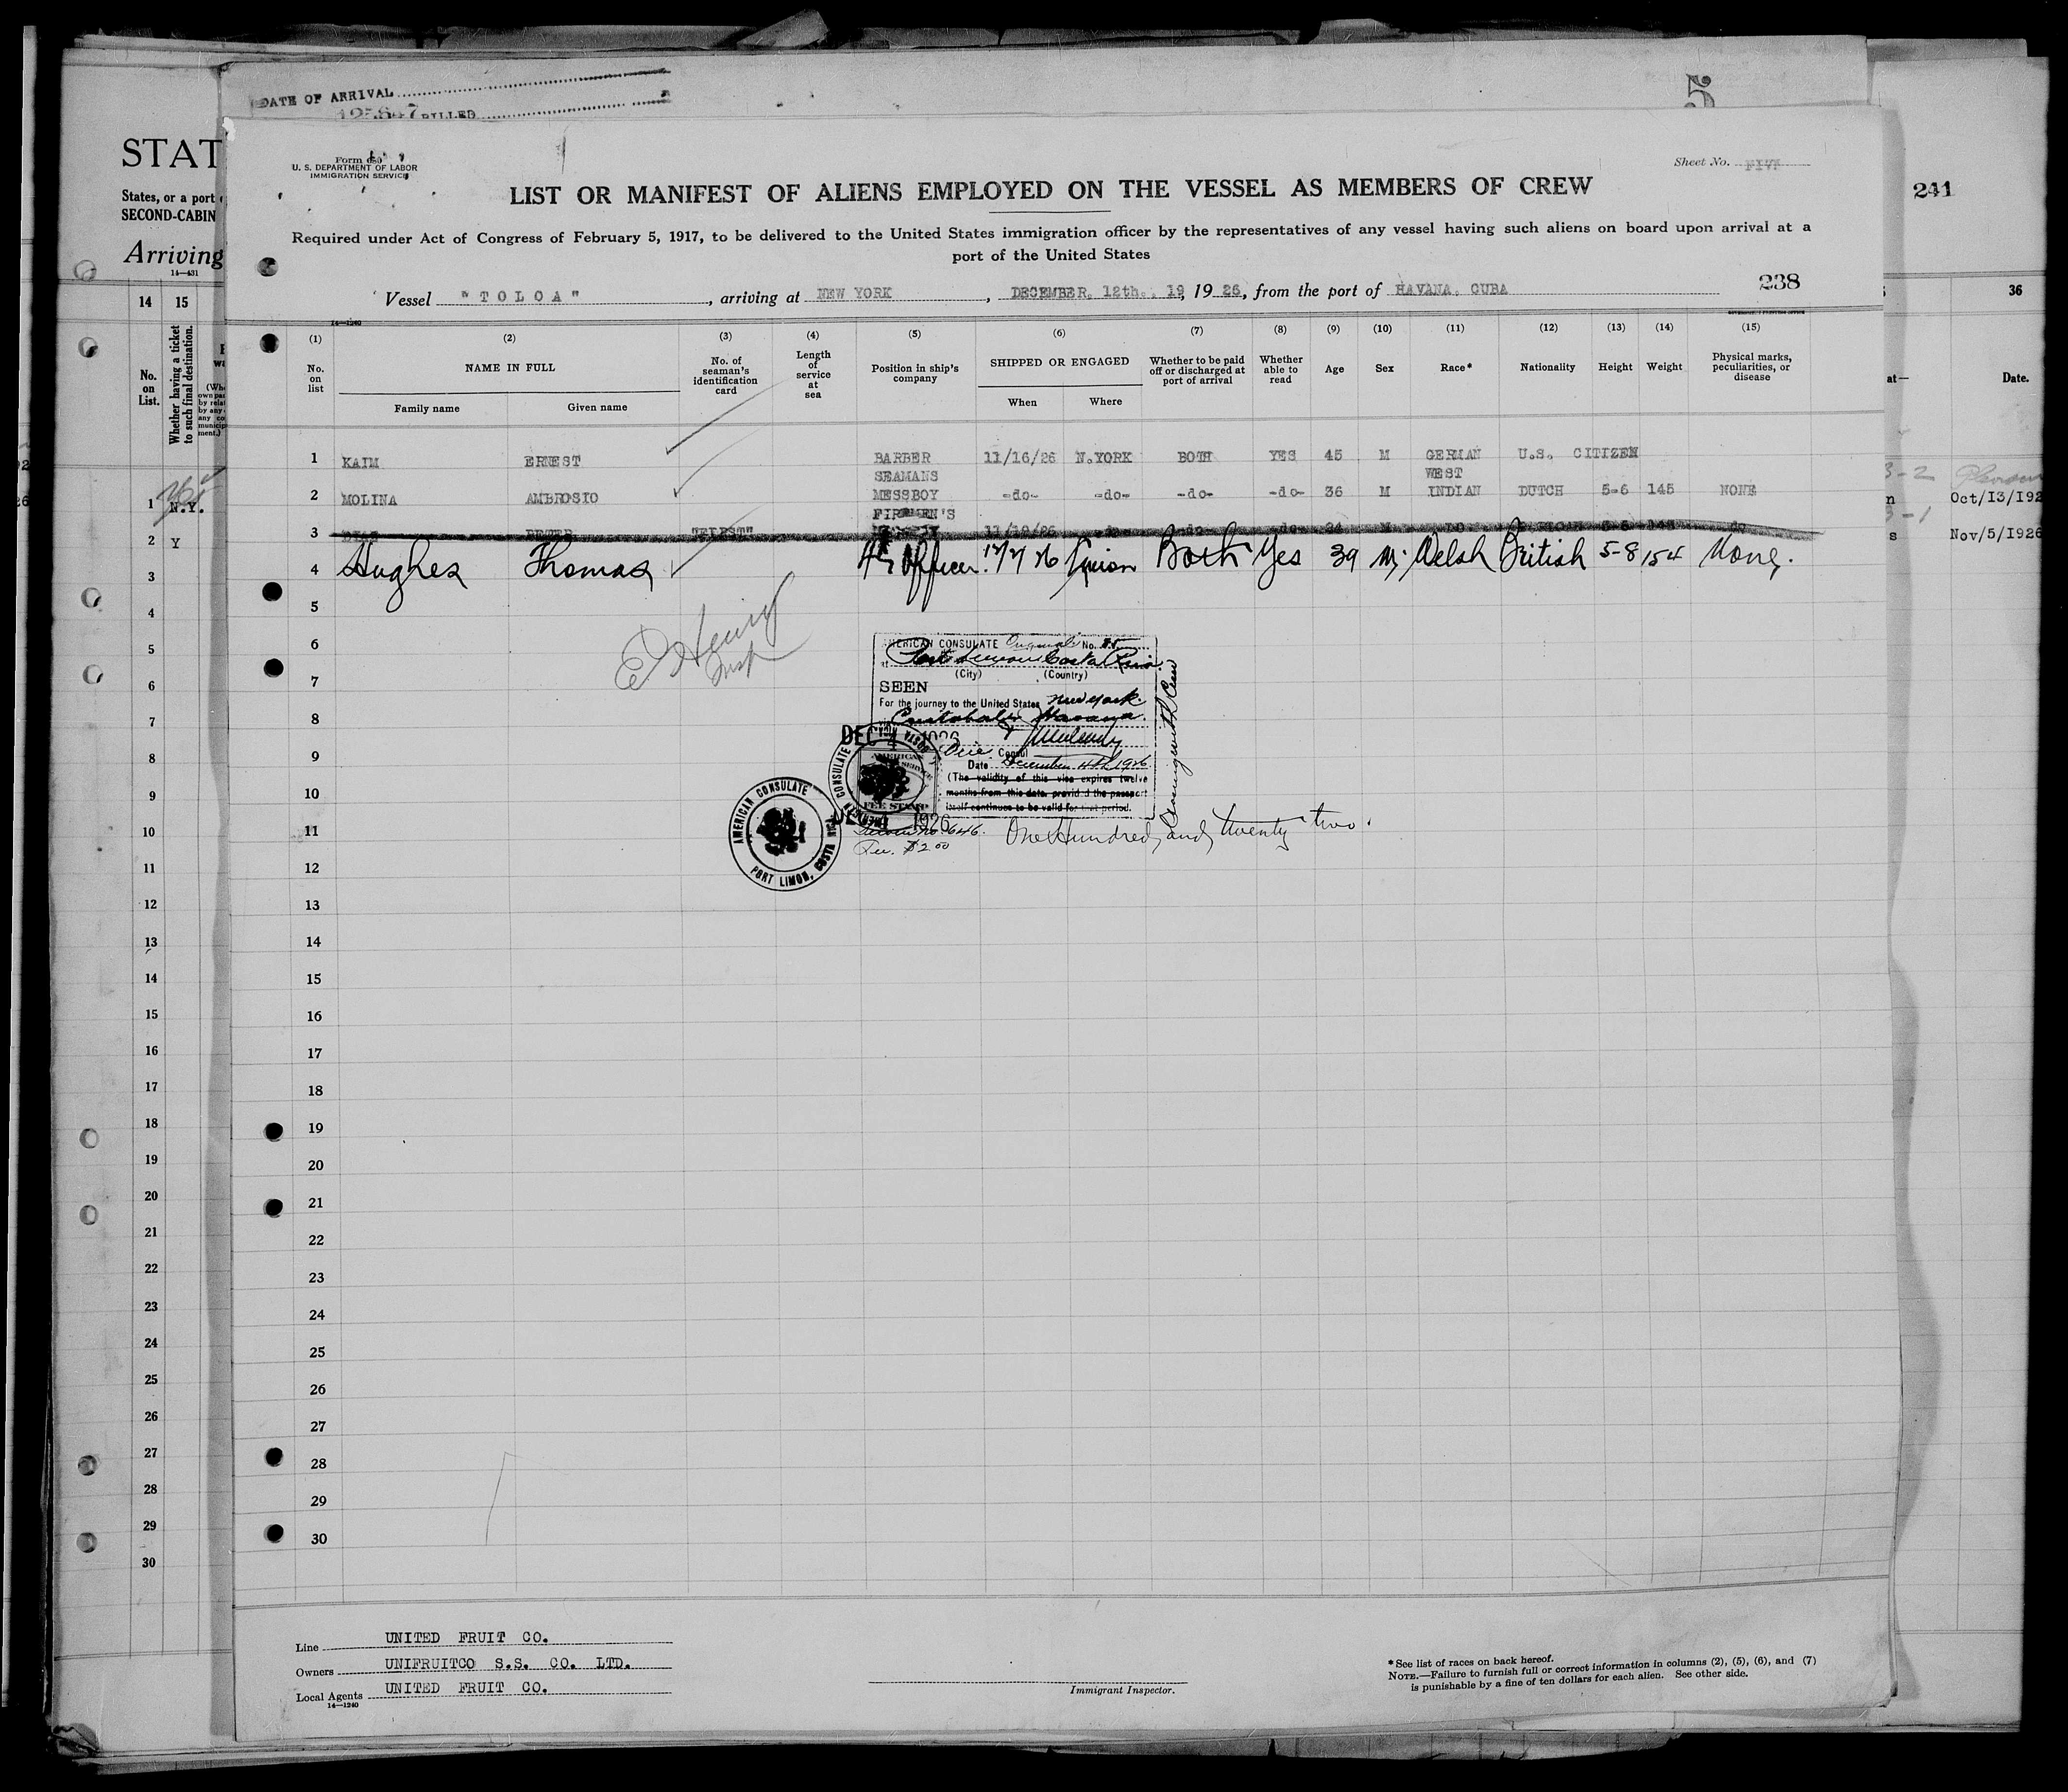 DATE OF ARRIVAL
5
STAT
States, or a port
SECOND-CABIN
Arriving
14—431
14 15
No. on List.
Whether having a ticket to such final destination.
1 N.Y.
2 Y
3
4
5
6
7
8
9
10
11
12
13
14
15
16
17
18
19
20
21
22
23
24
25
26
27
28
29
30
Form 680
U. S. DEPARTMENT OF LABOR
IMMIGRATION SERVICE
Sheet No. FIVE
LIST OR MANIFEST OF ALIENS EMPLOYED ON THE VESSEL AS MEMBERS OF CREW
Required under Act of Congress of February 5, 1917, to be delivered to the United States immigration officer by the representatives of any vessel having such aliens on board upon arrival at a
port of the United States
238
Vessel "TOLOA", arriving at NEW YORK, DECEMBER. 12th. 19, 1926, from the port of HAVANA. CUBA
14—1240
(1) (2) (3) (4) (5) (6) (7) (8) (9) (10) (11) (12) (13) (14) (15)
No. on list
NAME IN FULL
Family name Given name
No. of seaman's identification card
Length of service at sea
Position in ship's company
SHIPPED OR ENGAGED
When Where
Whether to be paid off or discharged at port of arrival
Whether able to read
Age
Sex
Race*
Nationality
Height
Weight
Physical marks, peculiarities, or disease
1 KAIM ERNEST BARBER 11/16/26 N.YORK BOTH YES 45 M GERMAN U.S. CITIZEN
SEAMANS WEST
2 MOLINA AMBROSIO MESSBOY -do- -do- -do- -do- 36 M INDIAN DUTCH 5-6 145 NONE
FIREMEN'S
3 "FIRST" 11/19/26
4 Hughes Thomas Officer Both Yes 39 M. Welsh British 5-8 154 None.
5
6
7
8
9
10
11
12
13
14
15
16
17
18
19
20
21
22
23
24
25
26
27
28
29
30
E D Henry
Insp
AMERICAN CONSULATE Original No.
at Port Limon Costa Rica
(City) (Country)
SEEN
For the journey to the United States New York
via Cristobal & Havana.
Consul
Date December 4th 1926
(The validity of this visa expires twelve
months from this date, provided the passport
itself continues to be valid for that period.
DEC 4 1926
FEE STAMP
DEC 4 1926
AMERICAN CONSULATE
PORT LIMON, COSTA RICA
646.
Fee. $2.00
One Hundred, and twenty two.
Line UNITED FRUIT CO.
Owners UNIFRUITCO S.S. CO. LTD.
Local Agents UNITED FRUIT CO.
14—1240
Immigrant Inspector.
*See list of races on back hereof.
NOTE.—Failure to furnish full or correct information in columns (2), (5), (6), and (7)
is punishable by a fine of ten dollars for each alien. See other side.
241
36
at—
Date.
Oct/13/192
Nov/5/1926